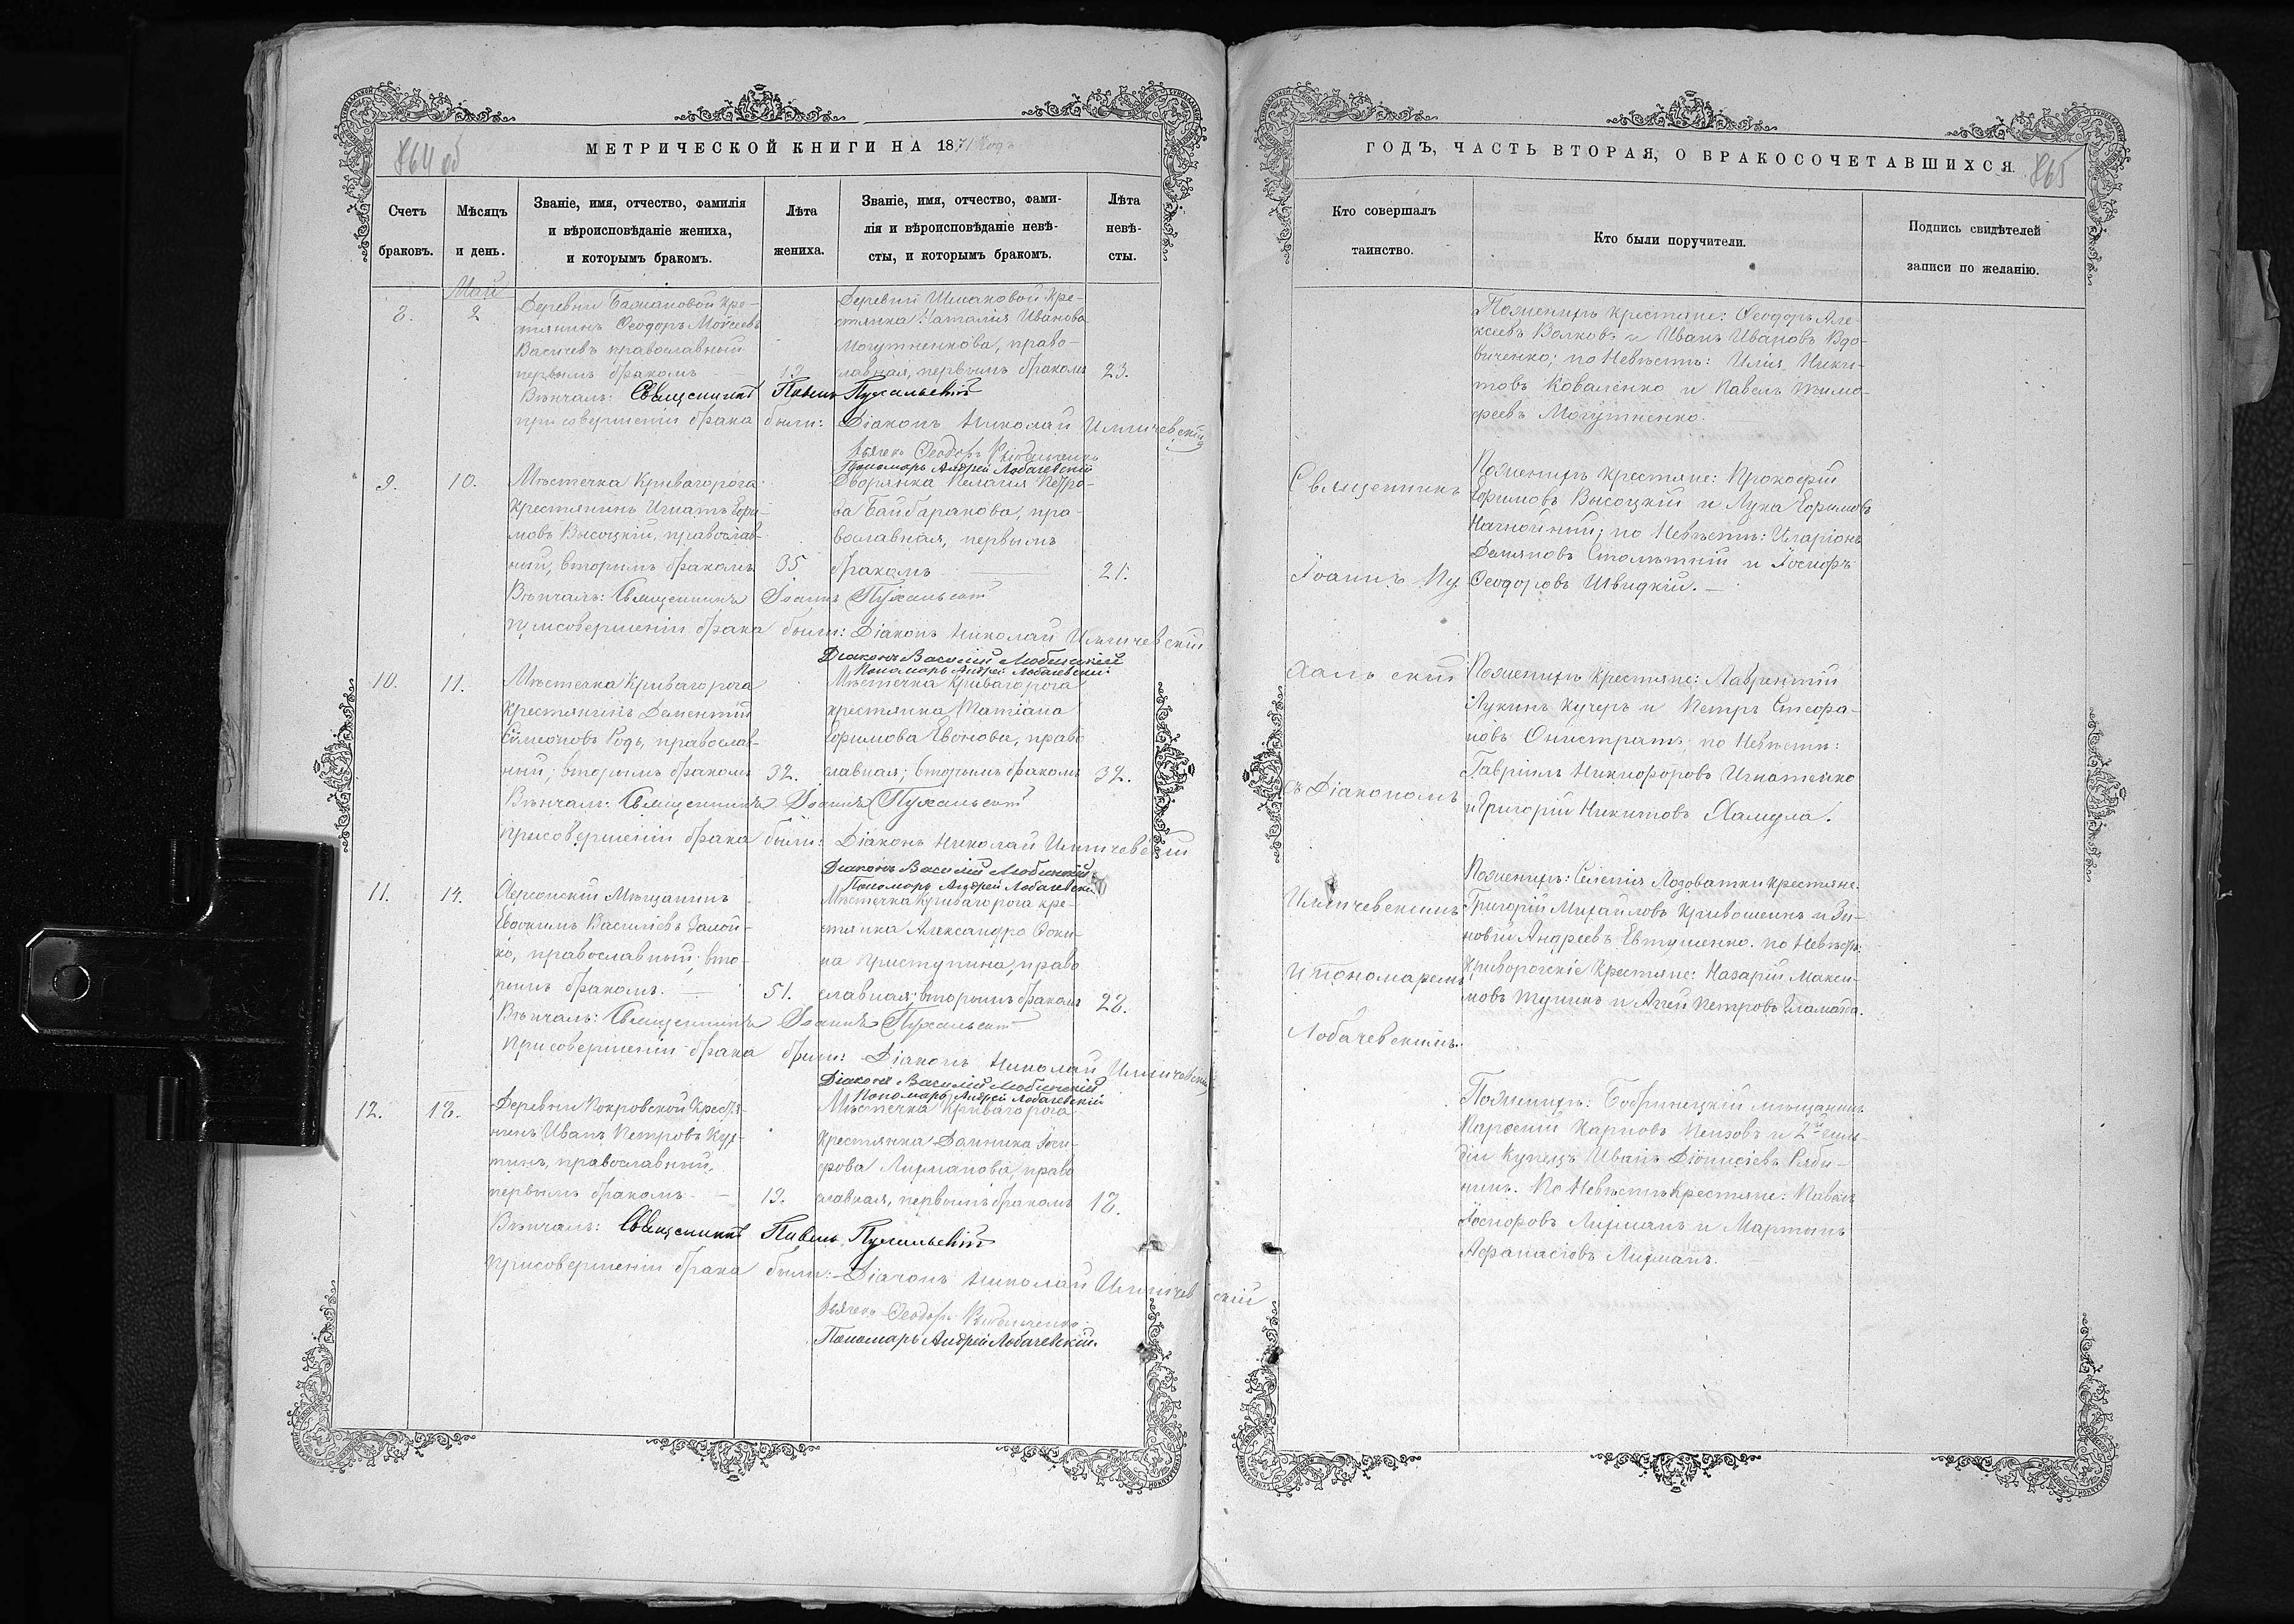 864 об
МЕТРИЧЕСКОЙ КНИГИ НА 1871 Годъ
Счетъ браковъ.
Мѣсяцъ и день.
Званіе, имя, отчество, фамилія
и вѣроисповѣданіе жениха,
и которымъ бракомъ.
Лѣта жениха.
Званіе, имя, отчество, фами-
лія и вѣроисповѣданіе невѣ-
сты, и которымъ бракомъ.
Лѣта невѣ-
сты.
Май
8.
2
Деревни Бажановой кре-
стянинъ Ѳеодоръ Моѵсеевъ
Васичевъ православный
первымъ бракомъ
19
Деревни Шмаковой Кре-
стянка Наталія Иванова
Могутненкова, право-
славная, первымъ бракомъ
23.
Вѣнчалъ: Священникъ Павелъ Пухальскій
при совершеніи брака были: Діаконъ Николай Илличевскій
Дьячекъ Ѳеодоръ
Пономарь Андрей Лобачевскій
9.
10.
Мѣстечка Кривагорога
Крестянинъ Игнатъ Ефи-
мовъ Высоцкій, православ-
ный, вторымъ бракомъ
35
Дворянка Пелагія Петро-
ва Байбаракова, пра-
вославная, первымъ
бракомъ
21.
Вѣнчалъ: Священникъ Іоаннъ Пухальскій
присовершеніи брака были: Діаконъ Николай Илличевскій
Діаконъ Василій Любицкій
Пономарь Андрей Лобачевскій
10.
11.
Мѣстечка Кривагорога
крестянинъ Дементій
Симеоновъ Родь, православ-
ный; вторымъ бракомъ
32.
Мѣстечка Кривагорога
крестянка Татіана
Ефимова Евонова, право
славная; вторымъ бракомъ
32.
Вѣнчалъ: Священникъ Іоаннъ Пухальскій
присовершеніи брака были: Діаконъ Николай Илличевскій
Діаконъ Василій Любицкій
Пономарь Андрей Лобачевскій
11.
14.
Херсонскій Мѣщанинъ
Евдокимъ Василіевъ Залой-
ко, православный; вто-
рымъ бракомъ.
51.
Мѣстечка Кривагорога кре-
стянка Александра Ѳоки-
на Приступина, право
славная; вторымъ бракомъ
28.
Вѣнчалъ: Священникъ Іоаннъ Пухальскій
Присовершеніи брака были: Діаконъ Николай Илличевскій
Діаконъ Василій Любицкій
Пономарь Андрей Лобачевскій
12.
18.
Деревни Покровской Крестя-
нинъ Иванъ Петровъ Кух-
тинъ, православный,
первымъ бракомъ
19.
Мѣстечка Кривагорога
Крестянка Домникa Іоси-
фова Лихманова, право
славная, первымъ бракомъ
18.
Вѣнчалъ: Священникъ Павелъ Пухальскій
Присовершеніи брака были: Діаконъ Николай Илличевскій
Дьячекъ Ѳеодоръ
Пономарь Андрей Лобачевскій.
ГОДЪ, ЧАСТЬ ВТОРАЯ, О БРАКОСОЧЕТАВШИХСЯ.
865
Кто совершалъ
таинство.
Кто были поручители.
Подпись свидѣтелей
записи по желанію.
Священникъ
Іоаннъ Пу
хальскій
съ Діакономъ
Илличевскимъ
и пономаремъ
Лобачевскимъ.
Поженихѣ крестяне: Ѳеодоръ Але-
ксѣевъ Волковъ и Иванъ Ивановъ Вдо-
виченко; по Невѣстѣ: Илія Ники-
товъ Коваленко и Павелъ Тимо-
феевъ Могутненко.
Поженихѣ крестяне: Прокофій
Ефимовъ Высоцкій и Лука Ефимовъ
Нагнойный; по Невѣстѣ: Иларіонъ
Демяновъ Столѣтній и Іосифъ
Ѳеодоровъ Швидкій.
Поженихѣ крестяне: Лаврентій
Лукинъ Кучеръ и Петръ Стефа-
новъ Онистратъ; по Невѣстѣ:
Гавріилъ Никифоровъ Игнатейко
и Григорій Никитовъ Хамула.
Поженихѣ: Селенія Лозоватки крестяне:
Григорій Михайловъ Кривошеинъ и Зи-
новій Андреевъ Евтушенко. по Невѣстѣ:
Криворожскіе Крестяне: Назарій Макси-
мовъ Тупикъ и Аггей Петровъ Гламазда.
Поженихѣ: Бобринецкій мѣщанинъ
Карповъ Пензовъ и 2й гиль-
діи Купецъ Иванъ Діонисіевъ Ряби-
нинъ. По Невѣстѣ Крестяне: Павелъ
Іосифовъ Лихманъ и Мартинъ
Афанасіовъ Лихманъ.